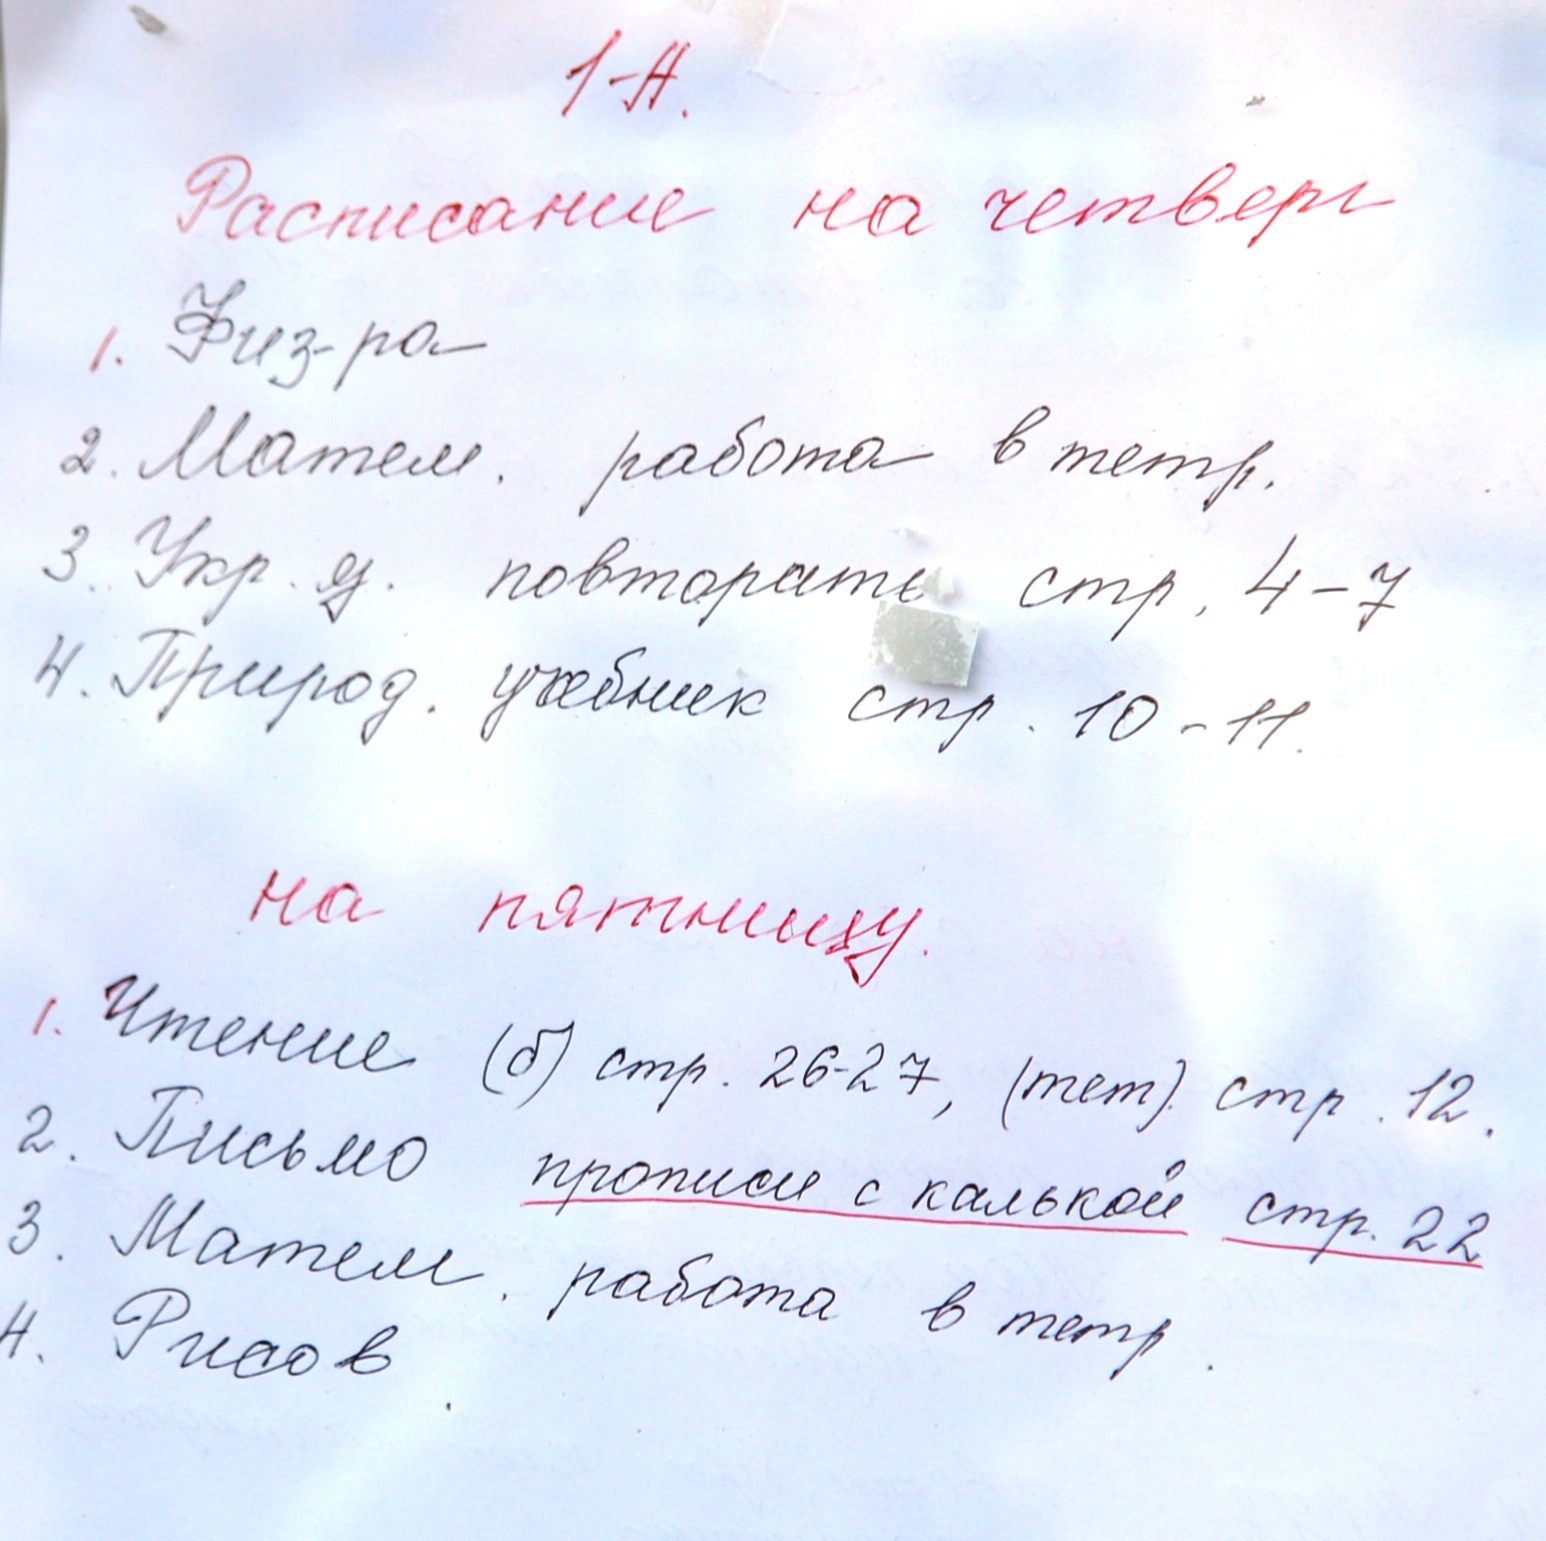 1-Н.
Расписание на четверг
1. Физ-ра
2. Матем. работа в тетр.
3. Укр. я. повторить стр. 4-7
4. Природ. учебник стр. 10-11.
на пятницу.
1. Чтение (б) стр. 26-27, (тет). стр. 12.
2. Письмо прописи с калькой стр. 22
3. Матем. работа в тетр.
4. Рисов.